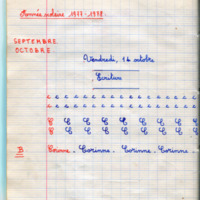 Année scolaire 1977-1978
SEPTEMBRE
OCTOBRE
Vendredi, 14 octobre
Ecriture
c c c c c c c c c c c
c c c c c c c c c c c
C C C C C C C C
C C C C C C C C
B Corinne. Corinne. Corinne. Corinne.